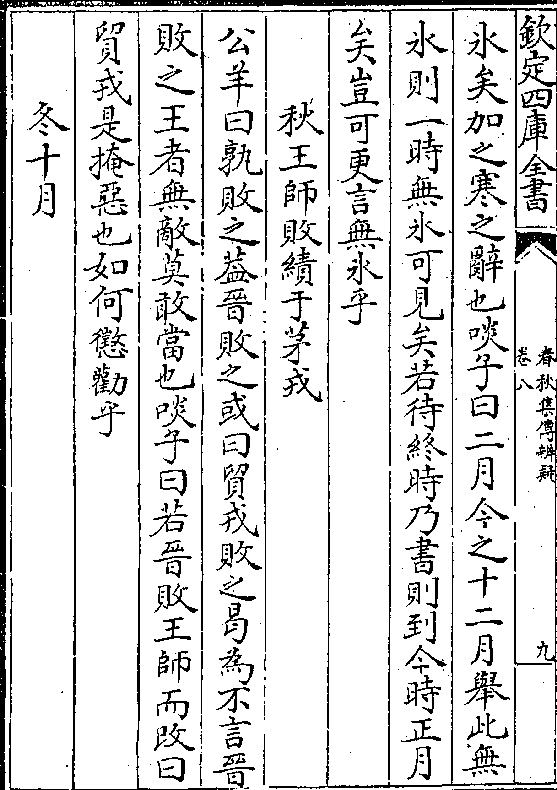 欽定四庫全書
春秋集傳辨疑
卷八
九
氷矣加之寒之辭也啖子曰二月今之十二月舉此無
氷則一時無氷可見矣若待終時乃書則到今時正月
矣豈可更言無氷乎
秋王師敗績于茅戎
公羊曰孰敗之葢晉敗之或曰貿戎敗之曷為不言晉
敗之王者無敵莫敢當也啖子曰若晉敗王師而改曰
貿戎是掩惡也如何懲勸乎
冬十月